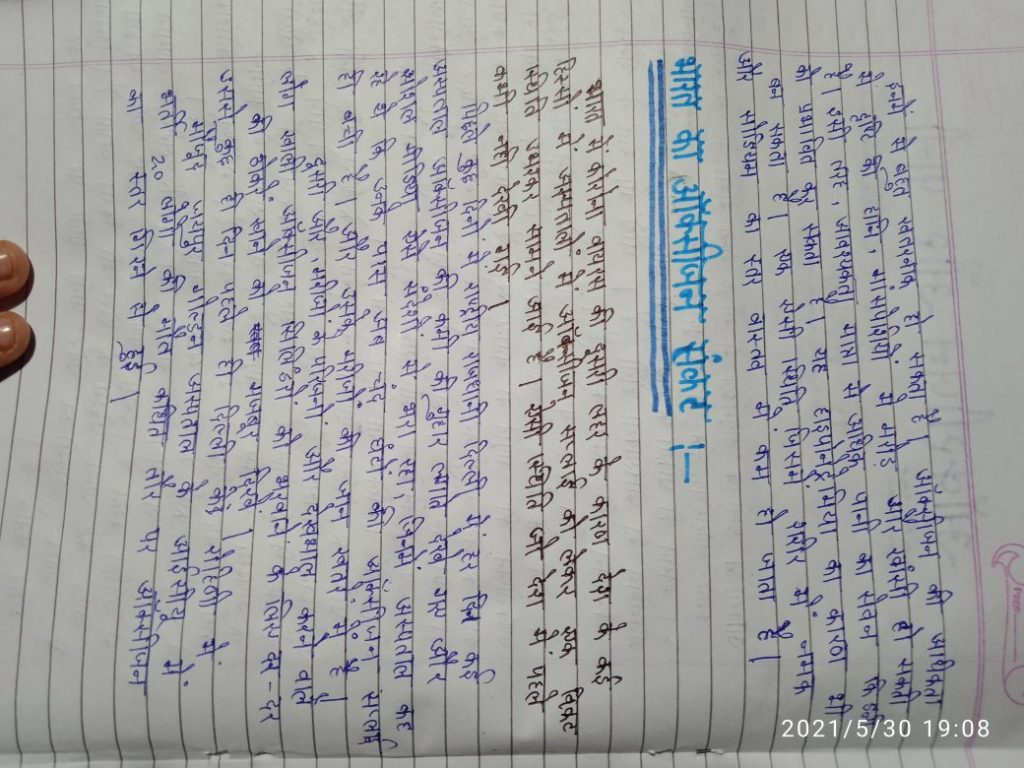 इनमें से बहुत खतरनाक हो सकता है। ऑक्सीजन की अधिकता
से दृष्टि की हानि, मांसपेशियों में मरोड़ और खांसी हो सकती
है। इसी तरह, आवश्यकता मात्रा से अधिक पानी का सेवन किडनी
को प्रभावित कर सकता है। यह हाइपोनेट्रेमिया का कारण भी
बन सकता है। एक ऐसी स्थिति जिसमें शरीर में नामक
और सोडियम का स्तर वास्तव में कम हो जाता है।
भारत का ऑक्सीजन संकट :-
भारत में कोरोना वायरस की दूसरी लहर के कारण देश के कई
हिस्सों में अस्पतालों में ऑक्सीजन सप्लाई को लेकर एक विकट
स्थिति उभरकर सामने आई है। ऐसी स्थिति जो देश में पहले
कभी नहीं देखी गई।
पिछले कुछ दिनों में राष्ट्रीय राजधानी दिल्ली में हर दिन कई
अस्पताल ऑक्सीजन की कमी की गुहार लगाते देखे गए और
सोशल मीडिया ऐसे संदेशों से भरा रहा, जिनमें अस्पताल कह
रहे थे कि उनके पास अब चंद घंटों की ऑक्सीजन सप्लाई
ही बची है। और उनके मरीजों की जान खतरे में है।
दूसरी ओर, मरीजों के परिजनों और देखभाल करने वाले
लोग खाली ऑक्सीजन सिलिंडरों को भरवाने के लिए दर-दर
की ठोकरें खाने को मजबूर दिखे।
उनमें कुछ ही दिन पहले ही दिल्ली के रोहिणी में
मौजूद जयपुर गोल्डन अस्पताल के आईसीयू में
भर्ती 20 लोगों की मौत कथित तौर पर ऑक्सीजन
का स्तर गिरने से हुई।
2021/5/30 19:08